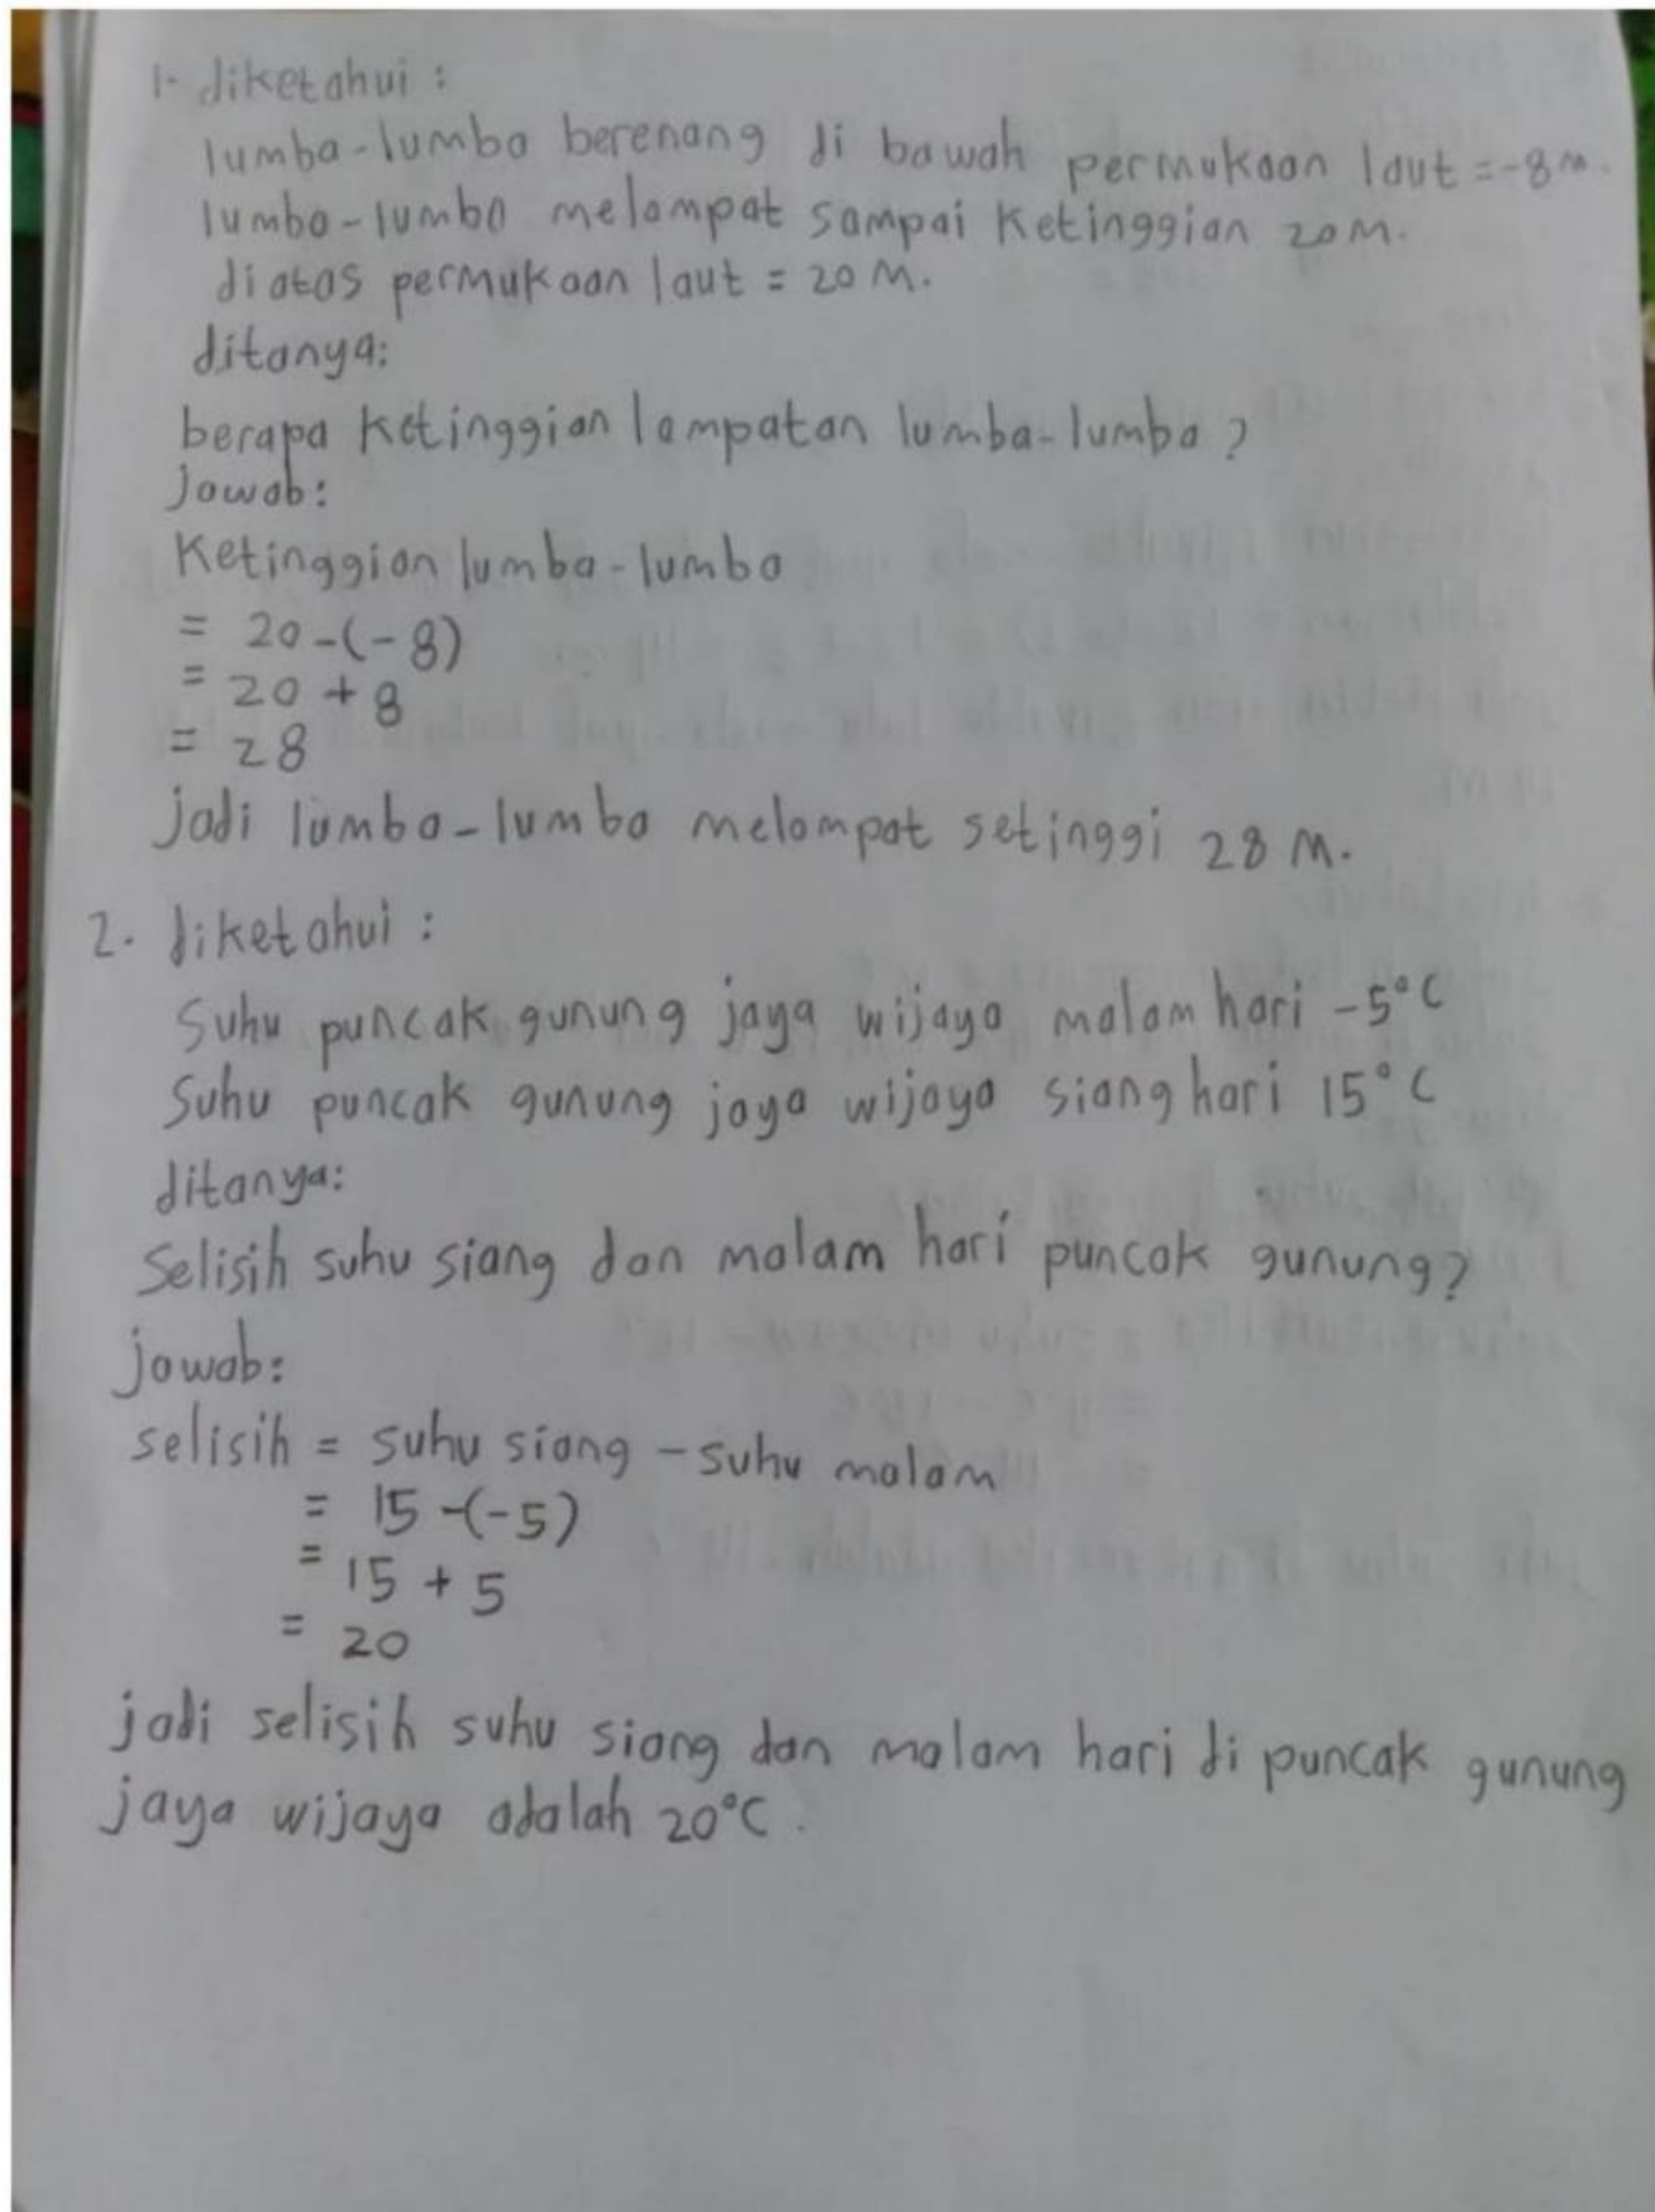 1. diketahui :
lumba-lumba berenang di bawah permukaan laut = -8 m.
lumba-lumba melompat sampai ketinggian 20 M.
diatas permukaan laut = 20 M.
ditanya:
berapa ketinggian lompatan lumba-lumba ?
Jawab:
Ketinggian lumba-lumba
= 20 -(-8)
= 20 + 8
= 28
jadi lumba-lumba melompat setinggi 28 M.
2. diketahui :
Suhu puncak gunung jaya wijaya malam hari -5°C
Suhu puncak gunung jaya wijaya siang hari 15°C
ditanya:
Selisih suhu siang dan malam hari puncak gunung?
jawab:
selisih = suhu siang - suhu malam
= 15 -(-5)
= 15 + 5
= 20
jadi selisih suhu siang dan malam hari di puncak gunung
jaya wijaya adalah 20°C.